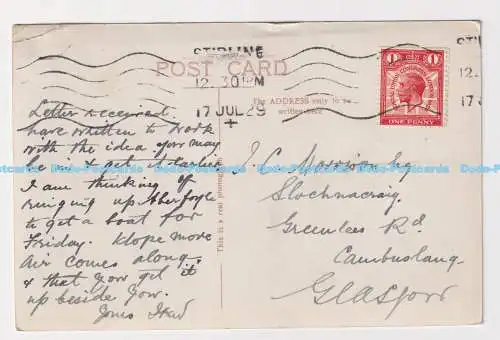 STIRLING
POST CARD
12.30 PM
17 JUL 29
The ADDRESS only to be
written here
ONE PENNY
This is a real photograph
Letter received
have written to work
with the idea you may
be in & get it earlier
I am thinking of
ringing up Aberfoyle
to get a boat for
Friday. Hope more
air comes along.
& that you get it
up beside you.
Yours
J. C. Morrison Esq
Slochnacraig
Greenlees Rd
Cambuslang
Glasgow
Dodo-Postcards Dodo-Postcards Dodo-Postcards Dodo-Postcards Dodo-Postcards